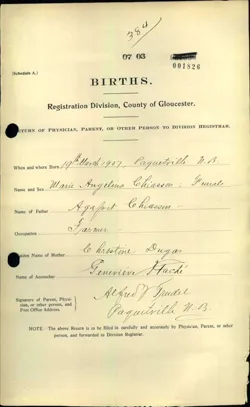 384
07 03
001826
(Schedule A.)
BIRTHS.
Registration Division, County of Gloucester.
RETURN OF PHYSICIAN, PARENT, OR OTHER PERSON TO DIVISION REGISTRAR.
When and where Born 19th March 1907 Paquetville N.B
Name and Sex Marie Angelina Chiasson Female
Name of Father Agapit Chiasson
Occupation Farmer
Maiden Name of Mother Christine Dugas
Name of Accoucher Genevieve Haché
Alfred Trudel
Signature of Parent, Physician, or other person, and Post Office Address
Paquetville N.B
NOTE.—The above Return is to be filled in carefully and accurately by Physician, Parent, or other person, and forwarded to Division Registrar.